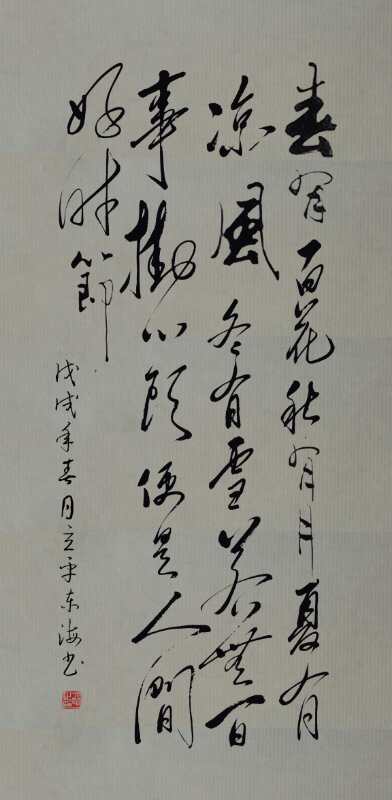 春有百花秋有月夏有
凉風冬有雪若無閒
事掛心頭便是人間
好時節
戊戌年春月立平东海书